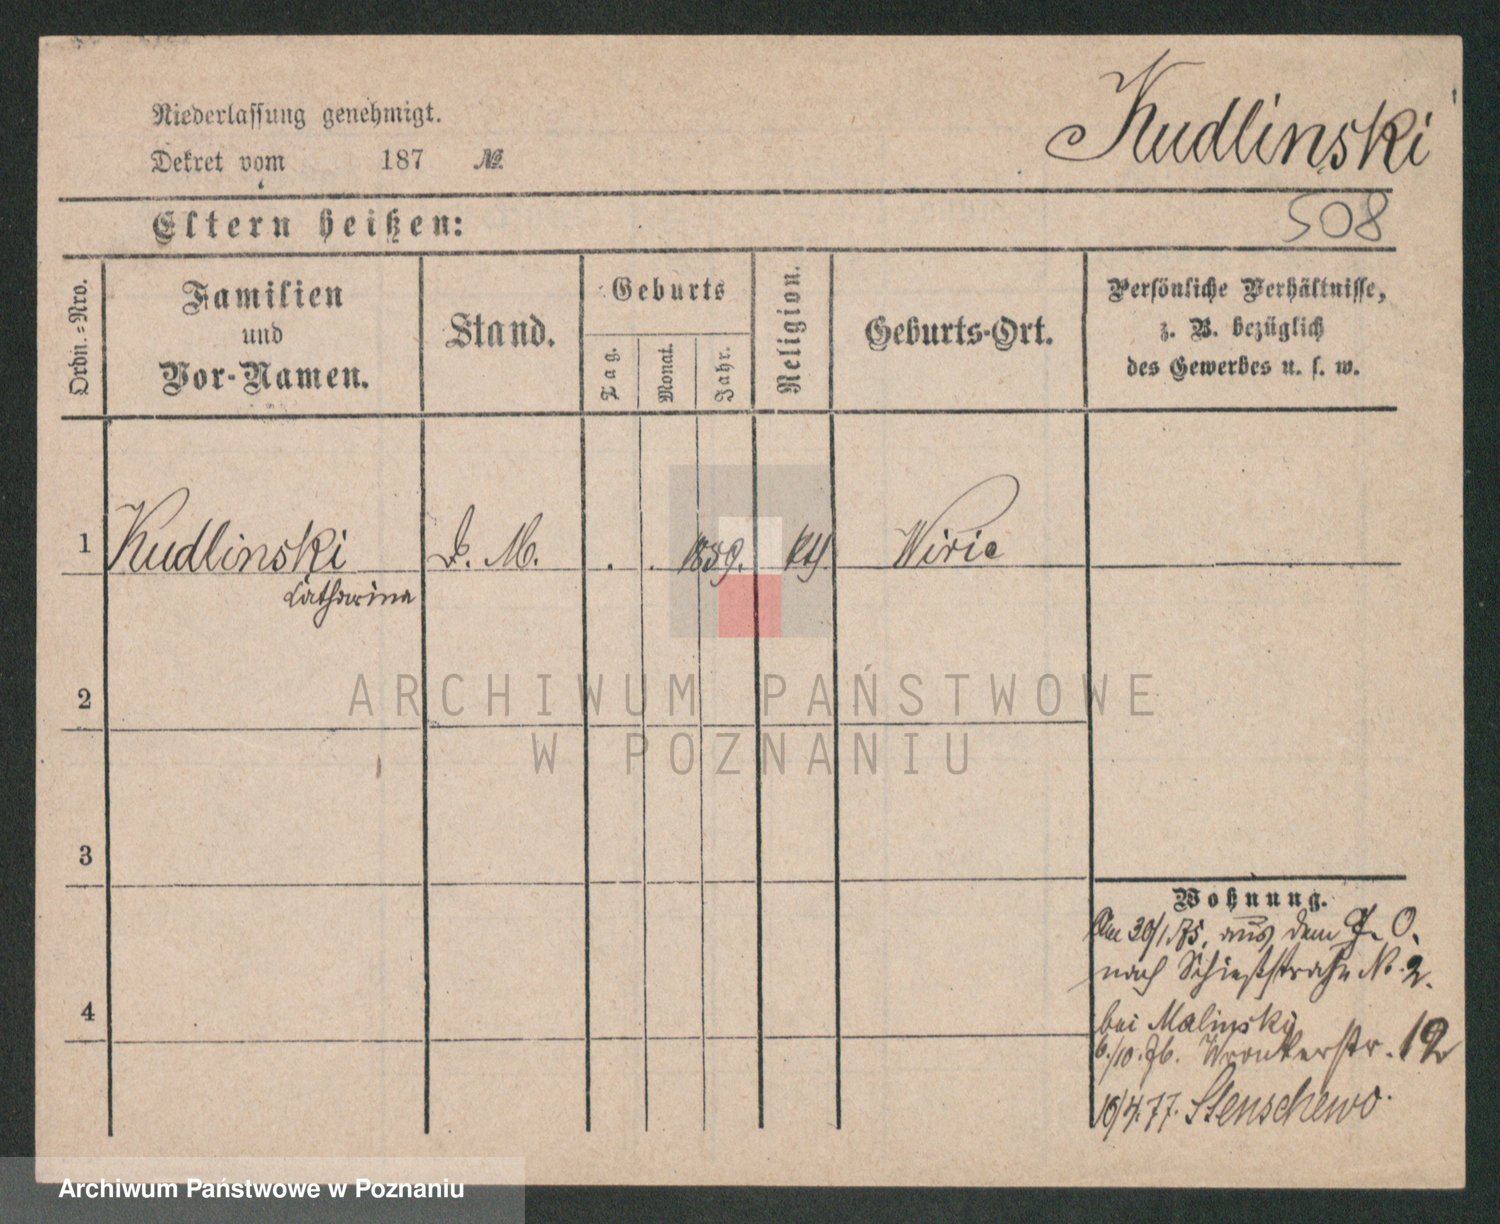 Niederlassung genehmigt.
Dekret vom 187 №
Kudlinski
508
Eltern heißen:
Ordn.-Nro.
Familien
und
Vor-Namen.
Stand.
Geburts
Tag.
Monat.
Jahr.
Religion.
Geburts-Ort.
Persönliche Verhältnisse,
z. B. bezüglich
des Gewerbes u. s. w.
1 Kudlinski D. M. . . kth. Wirie
Catharina
2
ARCHIWUM PAŃSTWOWE
W POZNANIU
3
4
Wohnung.
Am 30/1.75. aus dem J. O.
nach Schießstraße No. 2.
bei Malinski
6./10.76. Wronkerstr. 12
16/4.77. Stenschewo.
Archiwum Państwowe w Poznaniu